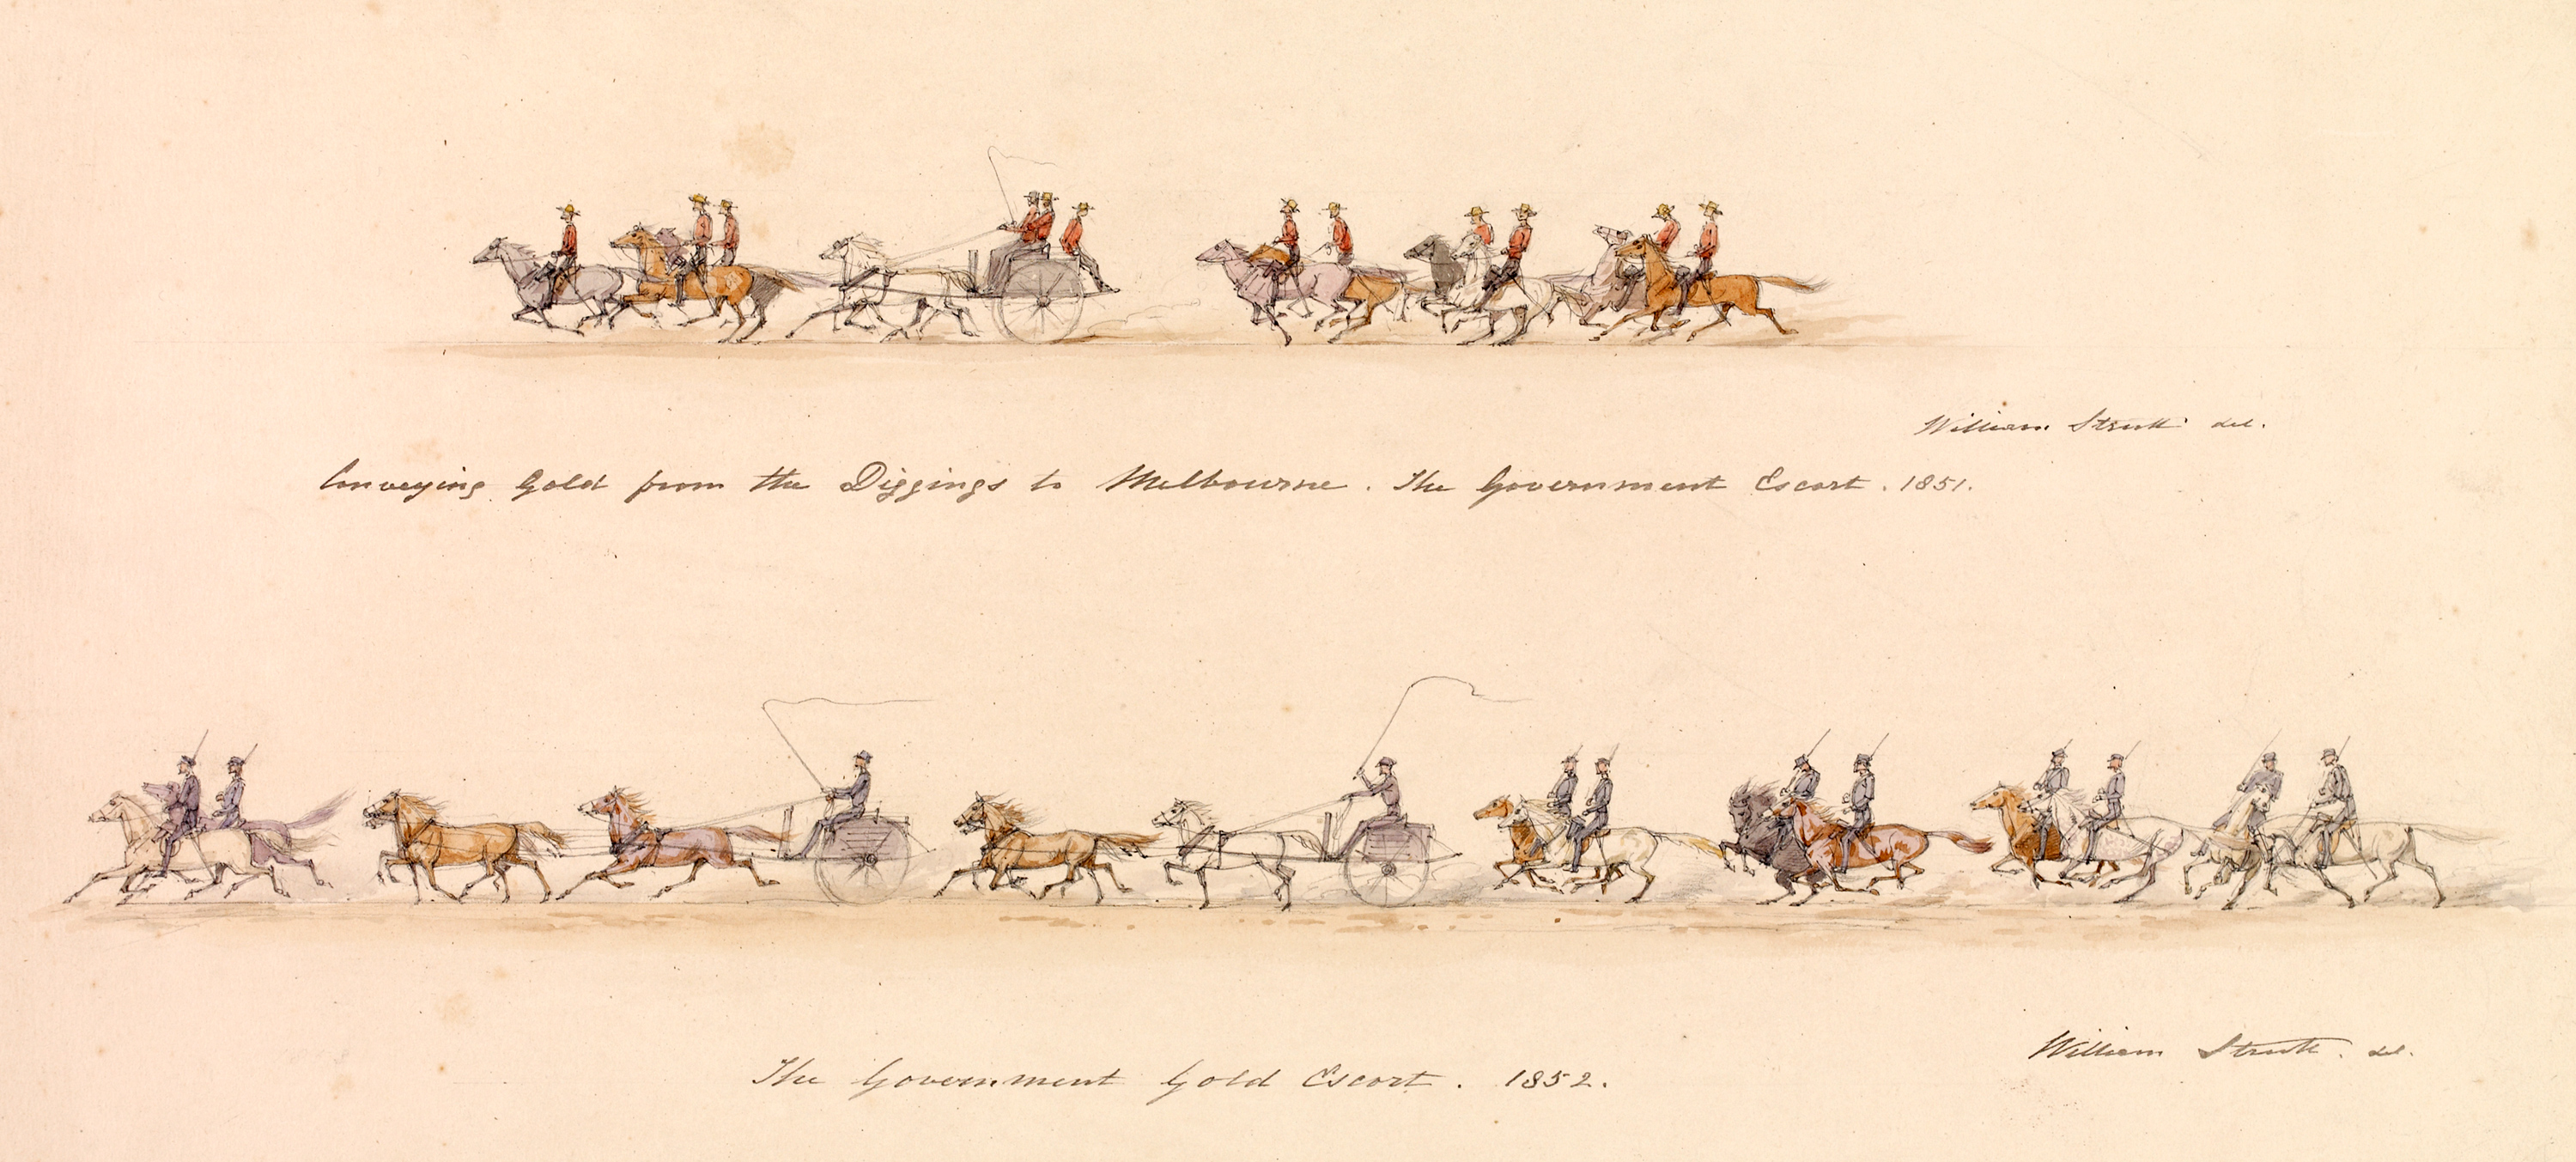 William Strutt del.
Conveying Gold from the Diggings to Melbourne. The Government Escort. 1851.
William Strutt. del.
The Government Gold Escort. 1852.